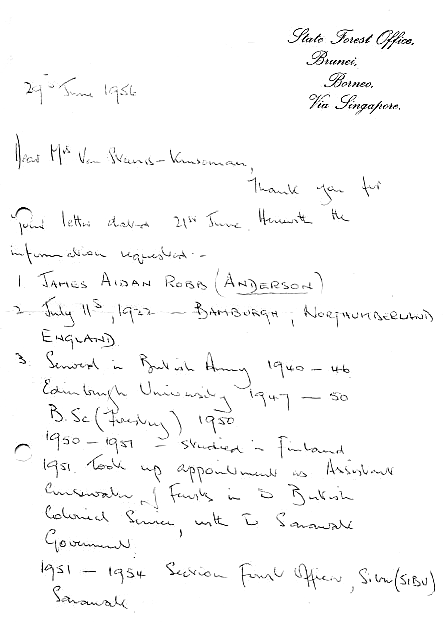 State Forest Office,
Brunei,
Borneo.
Via Singapore.
29th June 1956
Dear Mrs Van Steenis-Kruseman,
Thank you for
your letter dated 21st June. Herewith the
information requested:-
1. JAMES AIDAN ROBB (ANDERSON)
2. July 11th, 1922 - BAMBURGH, NORTHUMBERLAND
ENGLAND.
3. Served in British Army 1940 - 46
Edinburgh University 1947 - 50
B.Sc (Forestry) 1950
1950 - 1951 - studied in Finland
1951. Took up appointment as Assistant
Conservator of Forests in The British
Colonial Service, with The Sarawak
Government.
1951 - 1954 Section Forest Officer, Sibu (SIBU)
Sarawak.